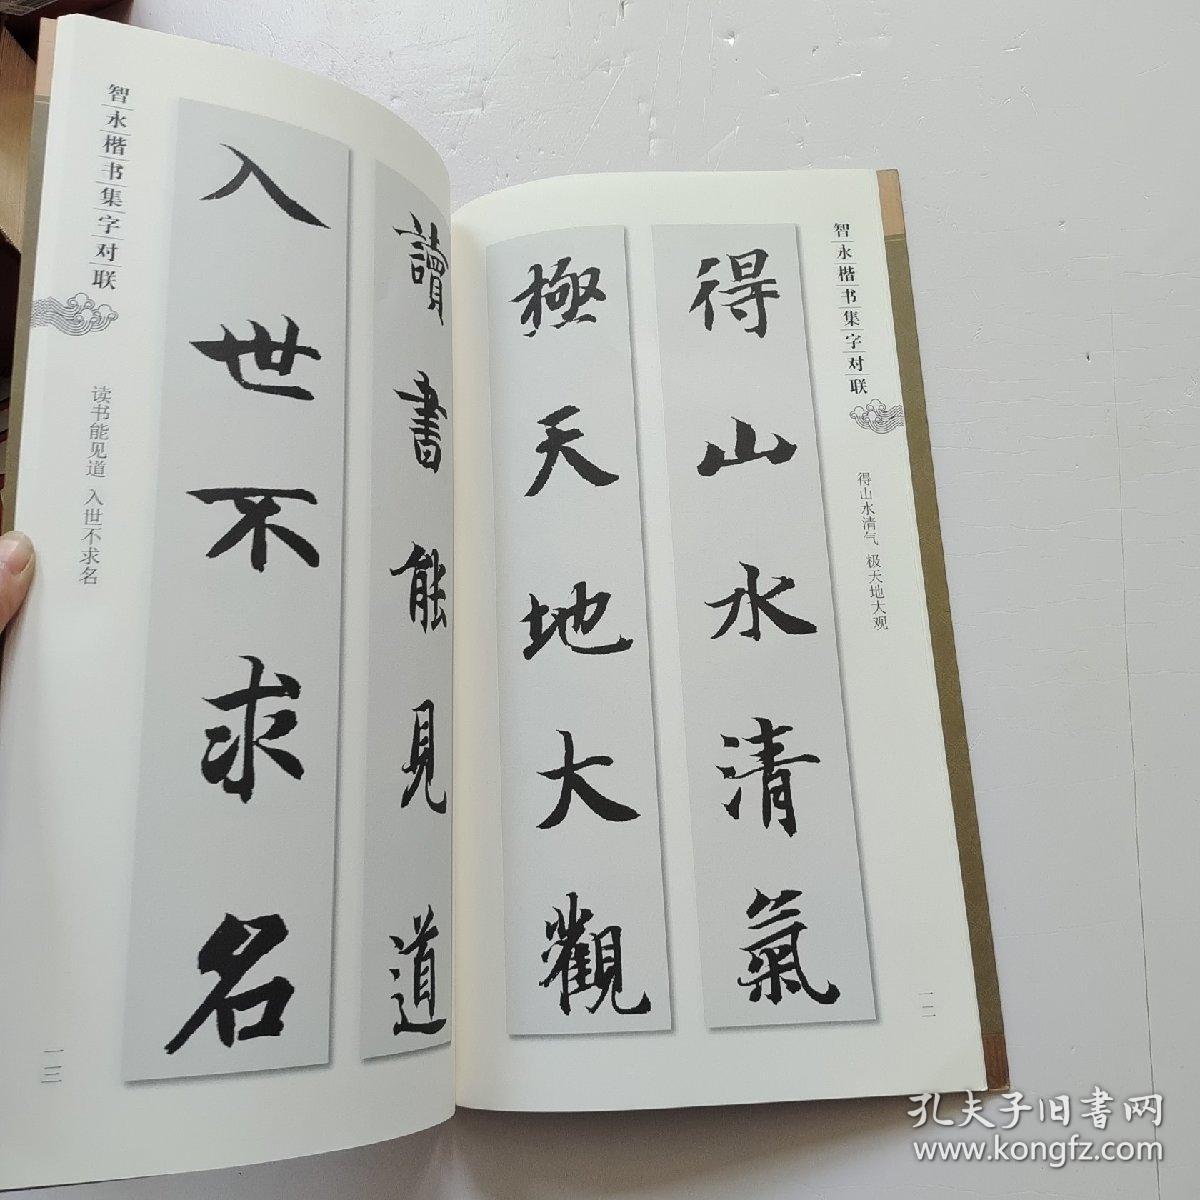 智永楷书集字对联
得山水清气 极天地大观
得山水清氣
極天地大觀
一二
讀書能見道
入世不求名
智永楷书集字对联
读书能见道 入世不求名
一三
孔夫子旧書网
www.kongfz.com